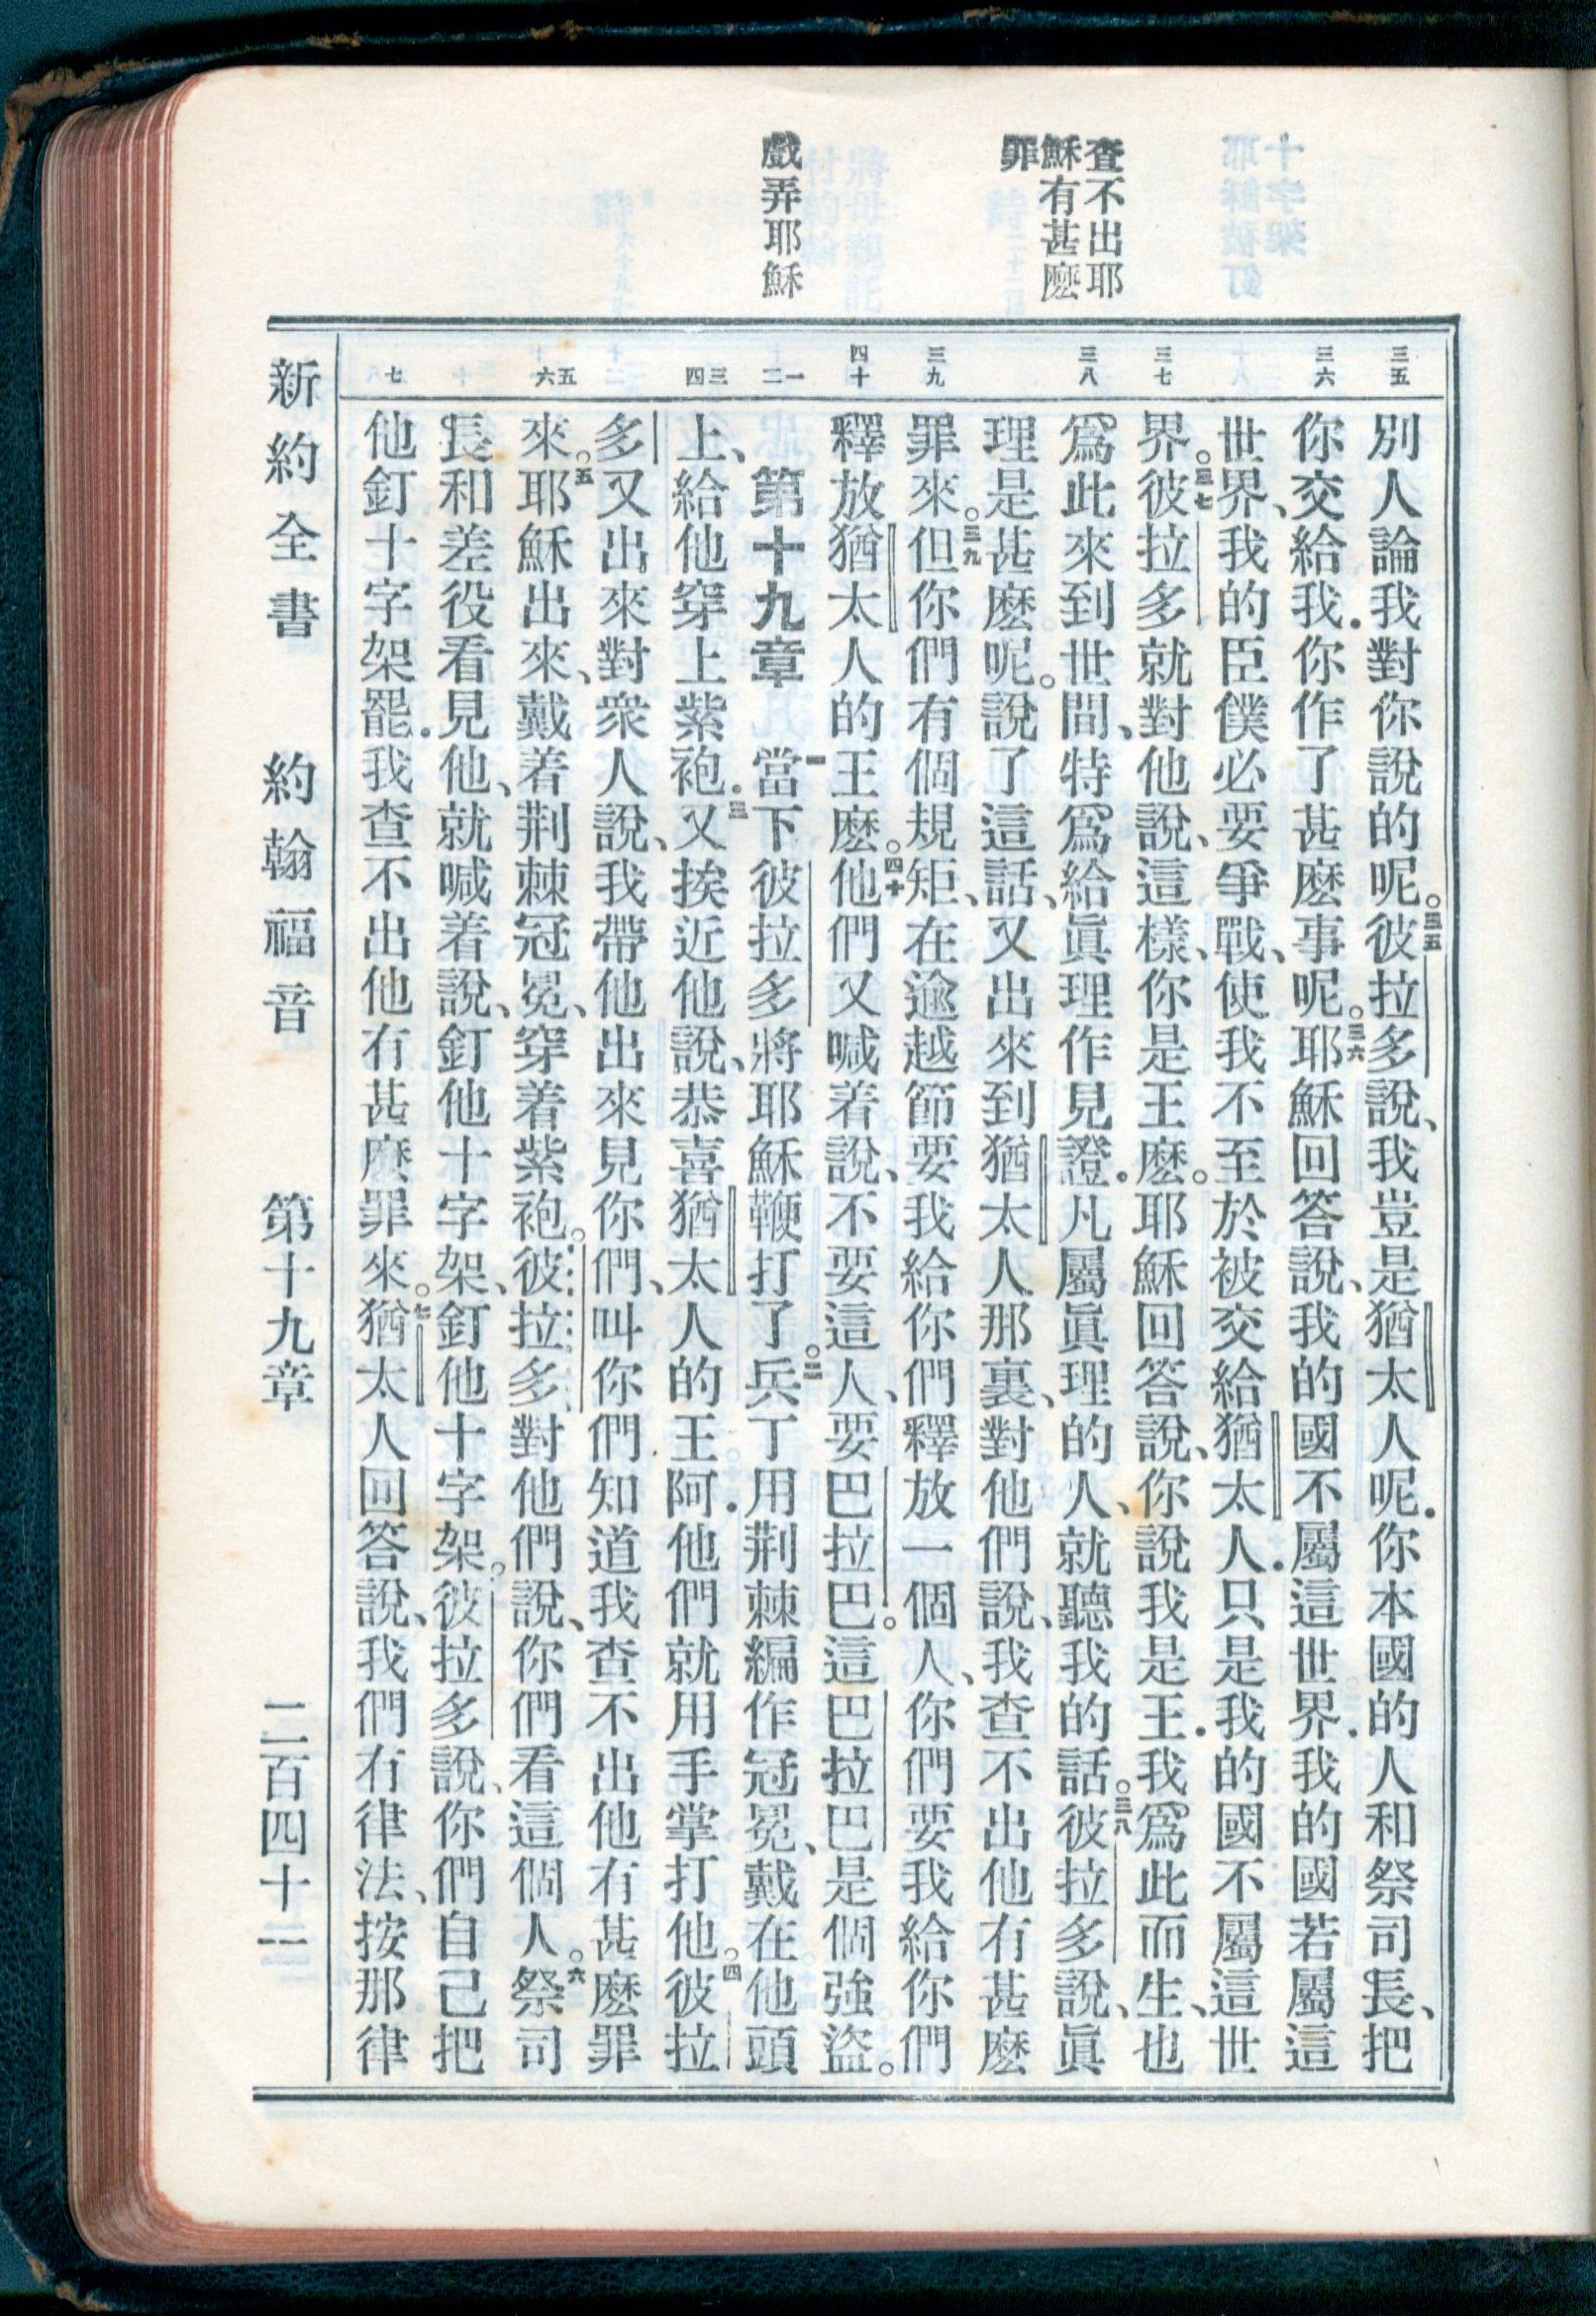 查不出耶
穌有甚麽
罪
戲弄耶穌
三五
三六
三七
三八
三九
四十
一
二
三
四
五
六
七
別人論我對你說的呢。三五彼拉多說、我豈是猶太人呢．你本國的人和祭司長、把
你交給我．你作了甚麽事呢。三六耶穌回答說、我的國不屬這世界．我的國若屬這
世界、我的臣僕必要爭戰、使我不至於被交給猶太人．只是我的國不屬這世
界。三七彼拉多就對他說、這樣、你是王麽。耶穌回答說、你說我是王．我爲此而生、也
爲此來到世間、特爲給眞理作見證．凡屬眞理的人、就聽我的話。三八彼拉多說、眞
理是甚麽呢。說了這話、又出來到猶太人那裏、對他們說、我查不出他有甚麽
罪來。三九但你們有個規矩、在逾越節要我給你們釋放一個人、你們要我給你們
釋放猶太人的王麽。四十他們又喊着說、不要這人、要巴拉巴。這巴拉巴是個強盜。
第十九章 一當下彼拉多將耶穌鞭打了。二兵丁用荆棘編作冠冕、戴在他頭
上、給他穿上紫袍．三又挨近他說、恭喜猶太人的王阿．他們就用手掌打他。四彼拉
多又出來對衆人說、我帶他出來見你們、叫你們知道我查不出他有甚麽罪
來。五耶穌出來、戴着荆棘冠冕、穿着紫袍。彼拉多對他們說、你們看這個人。六祭司
長和差役看見他、就喊着說、釘他十字架、釘他十字架。彼拉多說、你們自己把
他釘十字架罷．我查不出他有甚麽罪來。七猶太人回答說、我們有律法、按那律
新約全書 約翰福音 第十九章 二百四十一